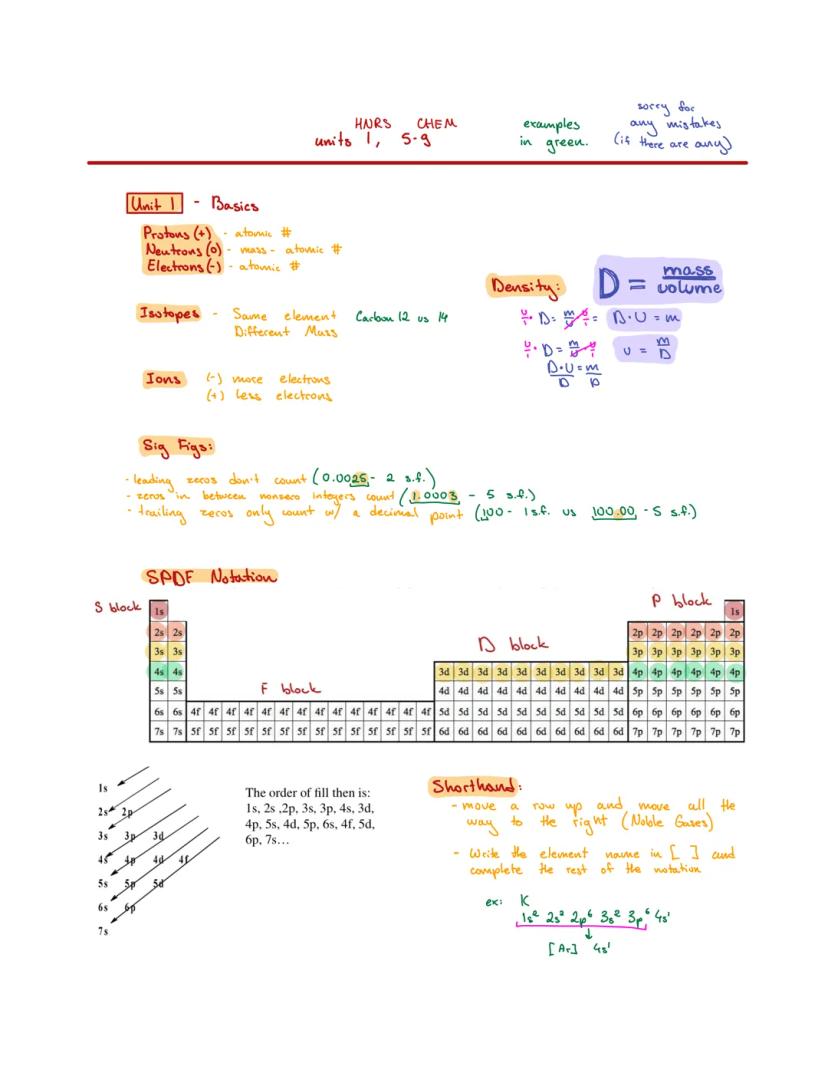 HNRS CHEM
units 1, 5-9
examples
in green.
sorry for
any mistakes
(if there are any)
Unit 1 - Basics
Protons (+) - atomic #
Neutrons (0) - mass - atomic #
Electrons (-) - atomic #
Density: D = mass/volume
v/1 • D = m/v • v/1 = D·V = m
v/1 • D = m/v • v/1 v = m/D
D·V/D = m/D
Isotopes - Same element Carbon 12 vs 14
Different Mass
Ions (-) more electrons
(+) less electrons
Sig Figs:
- leading zeros don't count (0.0025 - 2 s.f.)
- zeros in between nonzero integers count (1.0003 - 5 s.f.)
- trailing zeros only count w/ a decimal point (100 - 1 s.f. vs 100.00 - 5 s.f.)
SPDF Notation
S block 1s P block 1s
2s 2s 2p 2p 2p 2p 2p 2p
3s 3s D block 3p 3p 3p 3p 3p 3p
4s 4s 3d 3d 3d 3d 3d 3d 3d 3d 3d 3d 4p 4p 4p 4p 4p 4p
5s 5s F block 4d 4d 4d 4d 4d 4d 4d 4d 4d 4d 5p 5p 5p 5p 5p 5p
6s 6s 4f 4f 4f 4f 4f 4f 4f 4f 4f 4f 4f 4f 4f 5d 5d 5d 5d 5d 5d 5d 5d 5d 5d 6p 6p 6p 6p 6p 6p
7s 7s 5f 5f 5f 5f 5f 5f 5f 5f 5f 5f 5f 5f 5f 6d 6d 6d 6d 6d 6d 6d 6d 6d 6d 7p 7p 7p 7p 7p 7p
1s
2s 2p
3s 3p 3d
4s 4p 4d 4f
5s 5p 5d
6s 6p
7s
The order of fill then is:
1s, 2s ,2p, 3s, 3p, 4s, 3d,
4p, 5s, 4d, 5p, 6s, 4f, 5d,
6p, 7s…
Shorthand:
- move a row up and move all the
way to the right (Noble Gases)
- Write the element name in [ ] and
complete the rest of the notation
ex: K
1s² 2s² 2p⁶ 3s² 3p⁶ 4s¹
[Ar] 4s¹